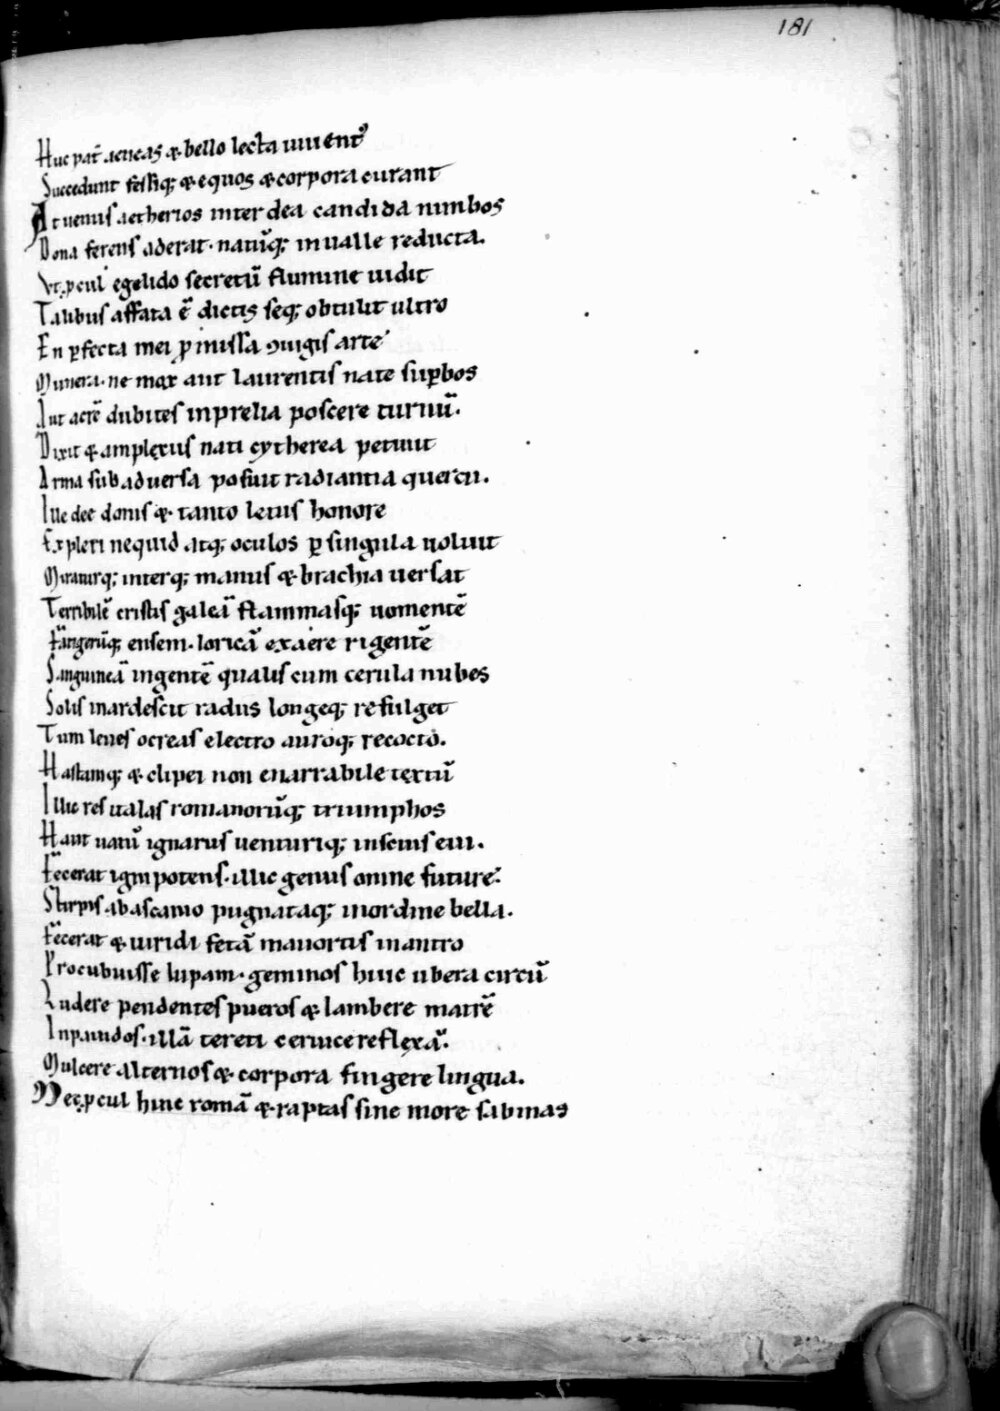 181
Huc pat̄ aeneas & bello lecta iuuent᾽
Succedunt fessiq; & equos & corpora curant
At uenus aetherios inter dea candida nimbos
Dona ferens aderat· natūq; in ualle reducta.
Vt ꝓcul egelido secretū flumine uidit
Talibus affata ē dictis seq; obtulit ultro
En ꝑfecta mei ꝓmissa ꝯiugis arte
Munera· ne mox aut laurentis nate suꝑbos
Aut acrē dubites in prelia poscere turnū.
Dixit & amplęxus nati cytherea petiuit
Arma sub aduersa posuit radiantia quercu.
Ille deę donis &· tanto letus honore
Expleri nequid atq; oculos ꝑ singula uoluit
Miraturq; interq; manus & brachia uersat
Terribilē cristis galeā flammasq; uomentē
Fatigerūq; ensem· loricā ex aere rigentē
Sanguineā ingentē qualis cum cerula nubes
Solis inardescit radiis longeq; refulget
Tum leues ocreas electro auroq; recocto.
Hastamq; & clipei non enarrabile tęxtū
Illic res italas romanorūq; triumphos
Haut uatū ignarus uenturiq; inscius eui.
Fecerat ignipotens· illic genus omne future
Stirpis ab ascanio pugnataq; in ordine bella.
Fecerat & uiridi fetā mauortis in antro
Procubuisse lupam· geminos huic ubera circū
Ludere pendentes pueros & lambere matrē
Inpauidos· illā tereti ceruice reflęxā.
Mulcere alternos &· corpora fingere lingua.
Nec ꝓcul hinc romā & raptas sine more sabinas